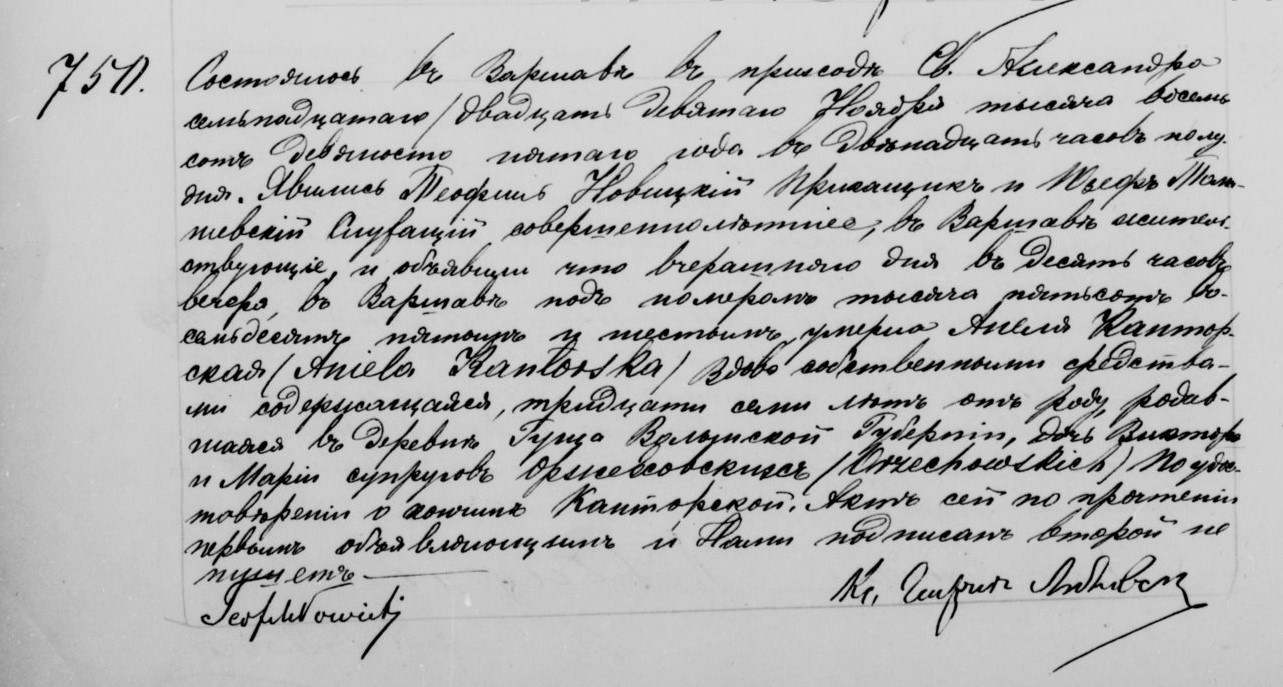 750.
Состоялось въ Варшавѣ въ приходѣ Св. Александра
семьнадцатаго / двадцать девятаго Ноября тысяча восемь
сотъ девяносто пятаго года въ двѣнадцать часовъ полу-
дня. Явились Теофиль Новицкій Прикащикъ и Іосефъ
шевскій Служащій совершеннолѣтніе, въ Варшавѣ житель-
ствующіе, и объявили что вчерашняго дня въ десять часовъ
вечера, въ Варшавѣ подъ номеромъ тысяча пятьсотъ во-
семьдесятъ пятымъ и шестымъ, умерла Анеля Кантор-
ская / Aniela Kantorska / Вдова собственными средства-
ми содержащаяся, тридцати семи лѣтъ отъ роду, родив-
шаяся въ деревнѣ Гуща Волынской Губерніи, дочь Виктора
и Маріи супруговъ Оржеховскихъ / Orzechowskich / По удос-
товѣреніи о кончинѣ Канторской. Актъ сей по прочтеніи
первымъ объявляющимъ и Нами подписанъ второй не
пишетъ.
Teofil Nowicki
Кс.